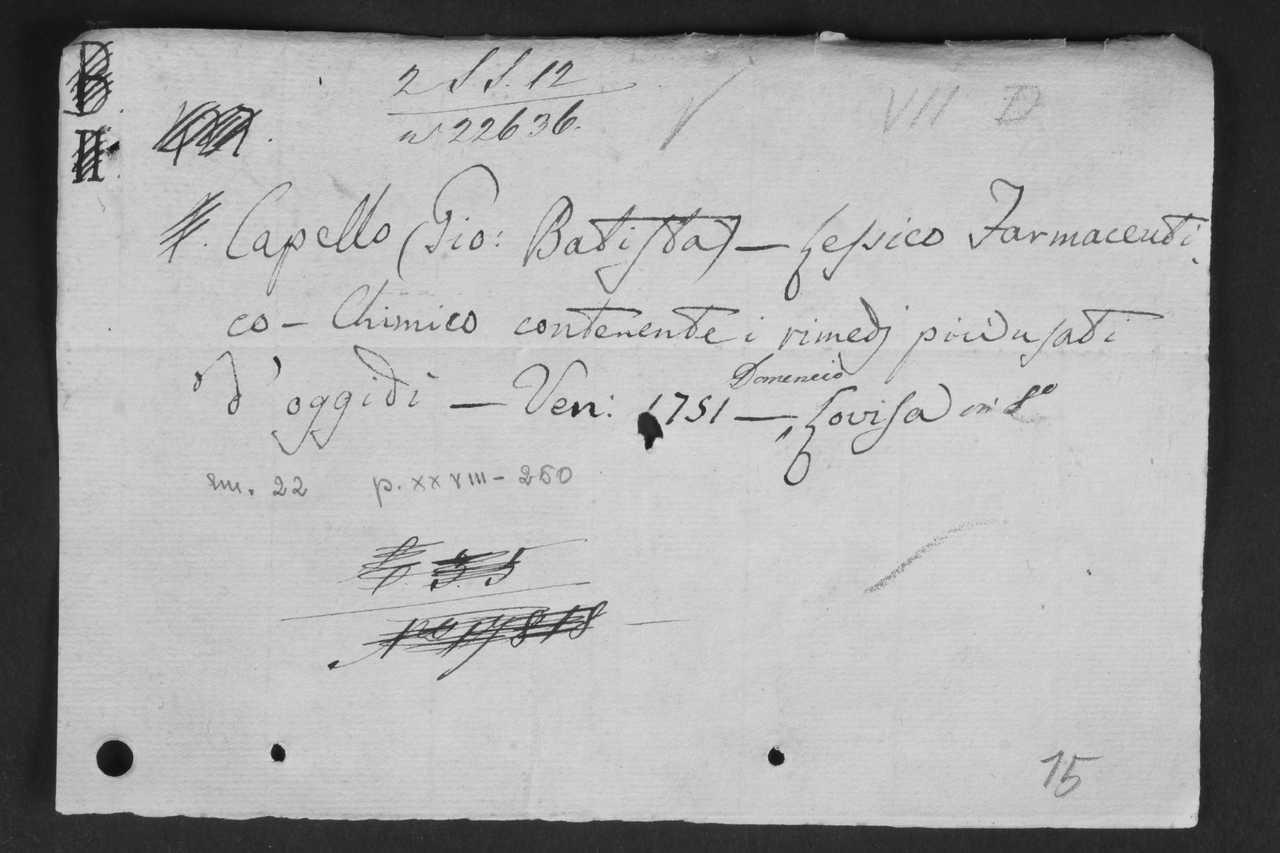 B
2 S S. 12
VII D
II
n° 22636.
Capello (Gio: Batista) — Lessico Farmaceuti.
co – Chimico contenente i rimedj più usati
d'oggidi — Ven: 1751 — Domenico Lovisa in 8°
p. XXVIII – 260
22
15